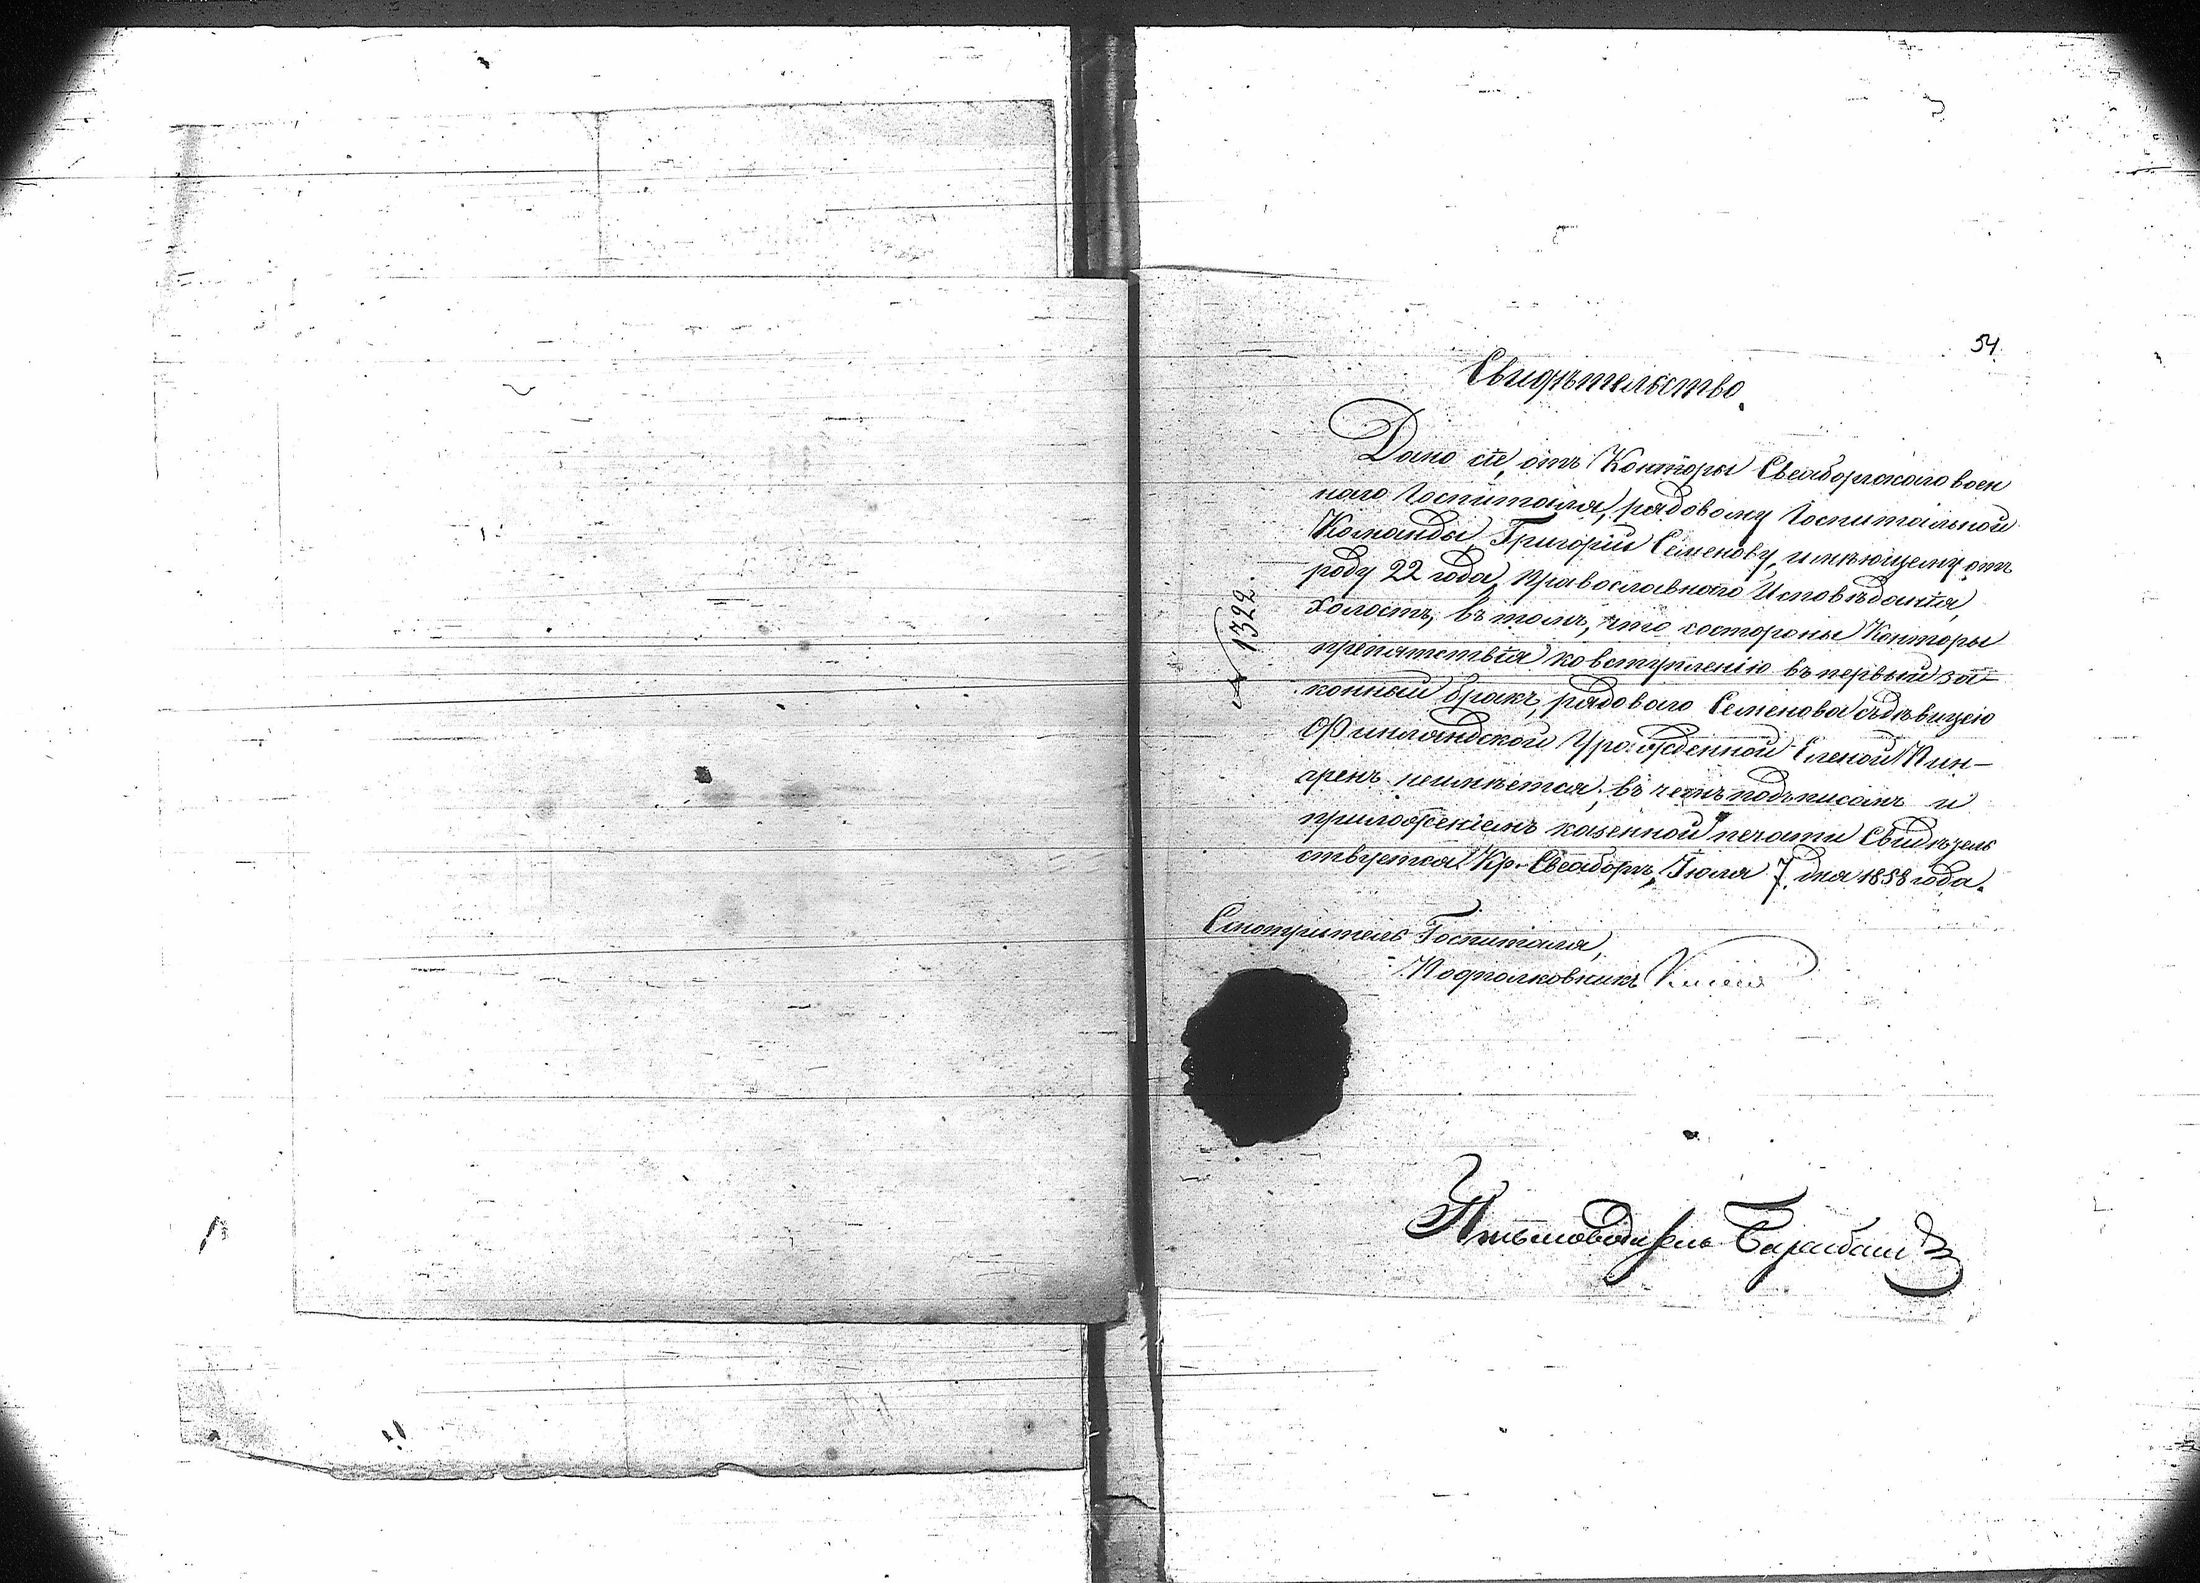 54
Свидѣтельство.
Дано сіе, отъ Конторы Свеаборгскаго воен
наго Госпиталя, рядовому Госпитальной
Команды, Григорію Семенову, имѣющему отъ
роду 22 года, Православнаго Исповѣданія,
холостъ, въ томъ, что состороны Конторы
препятствія ковступленію въ первый за-
конный бракъ, рядоваго Семенова съдѣвицею
Финляндской Уроженной Еленой Пин-
гренъ неимѣется; въ чемъ подписомъ и
приложеніемъ казенной печати Свидѣтель
ствуется Кр. Свеаборгъ, Іюля 7. дня 1858 года.
№ 1322.
Смотритель Госпиталя,
Подполковникъ
Письмоводитель